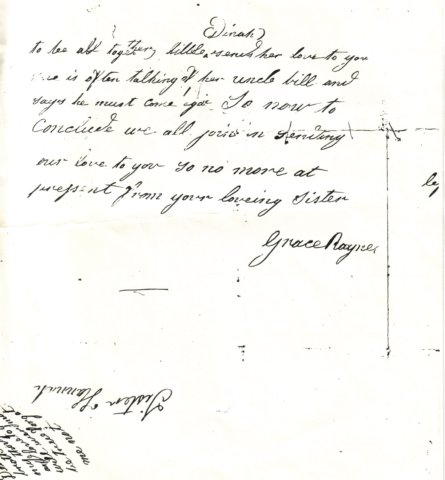 (Dinah)
to be all together, little sends her love to you
is often talking of her uncle bill and
says he must come So now to
Conclude we all join in sending
our love to you so no more at
present from your loveing sister
Grace Rayner
Sister Hannah
me not